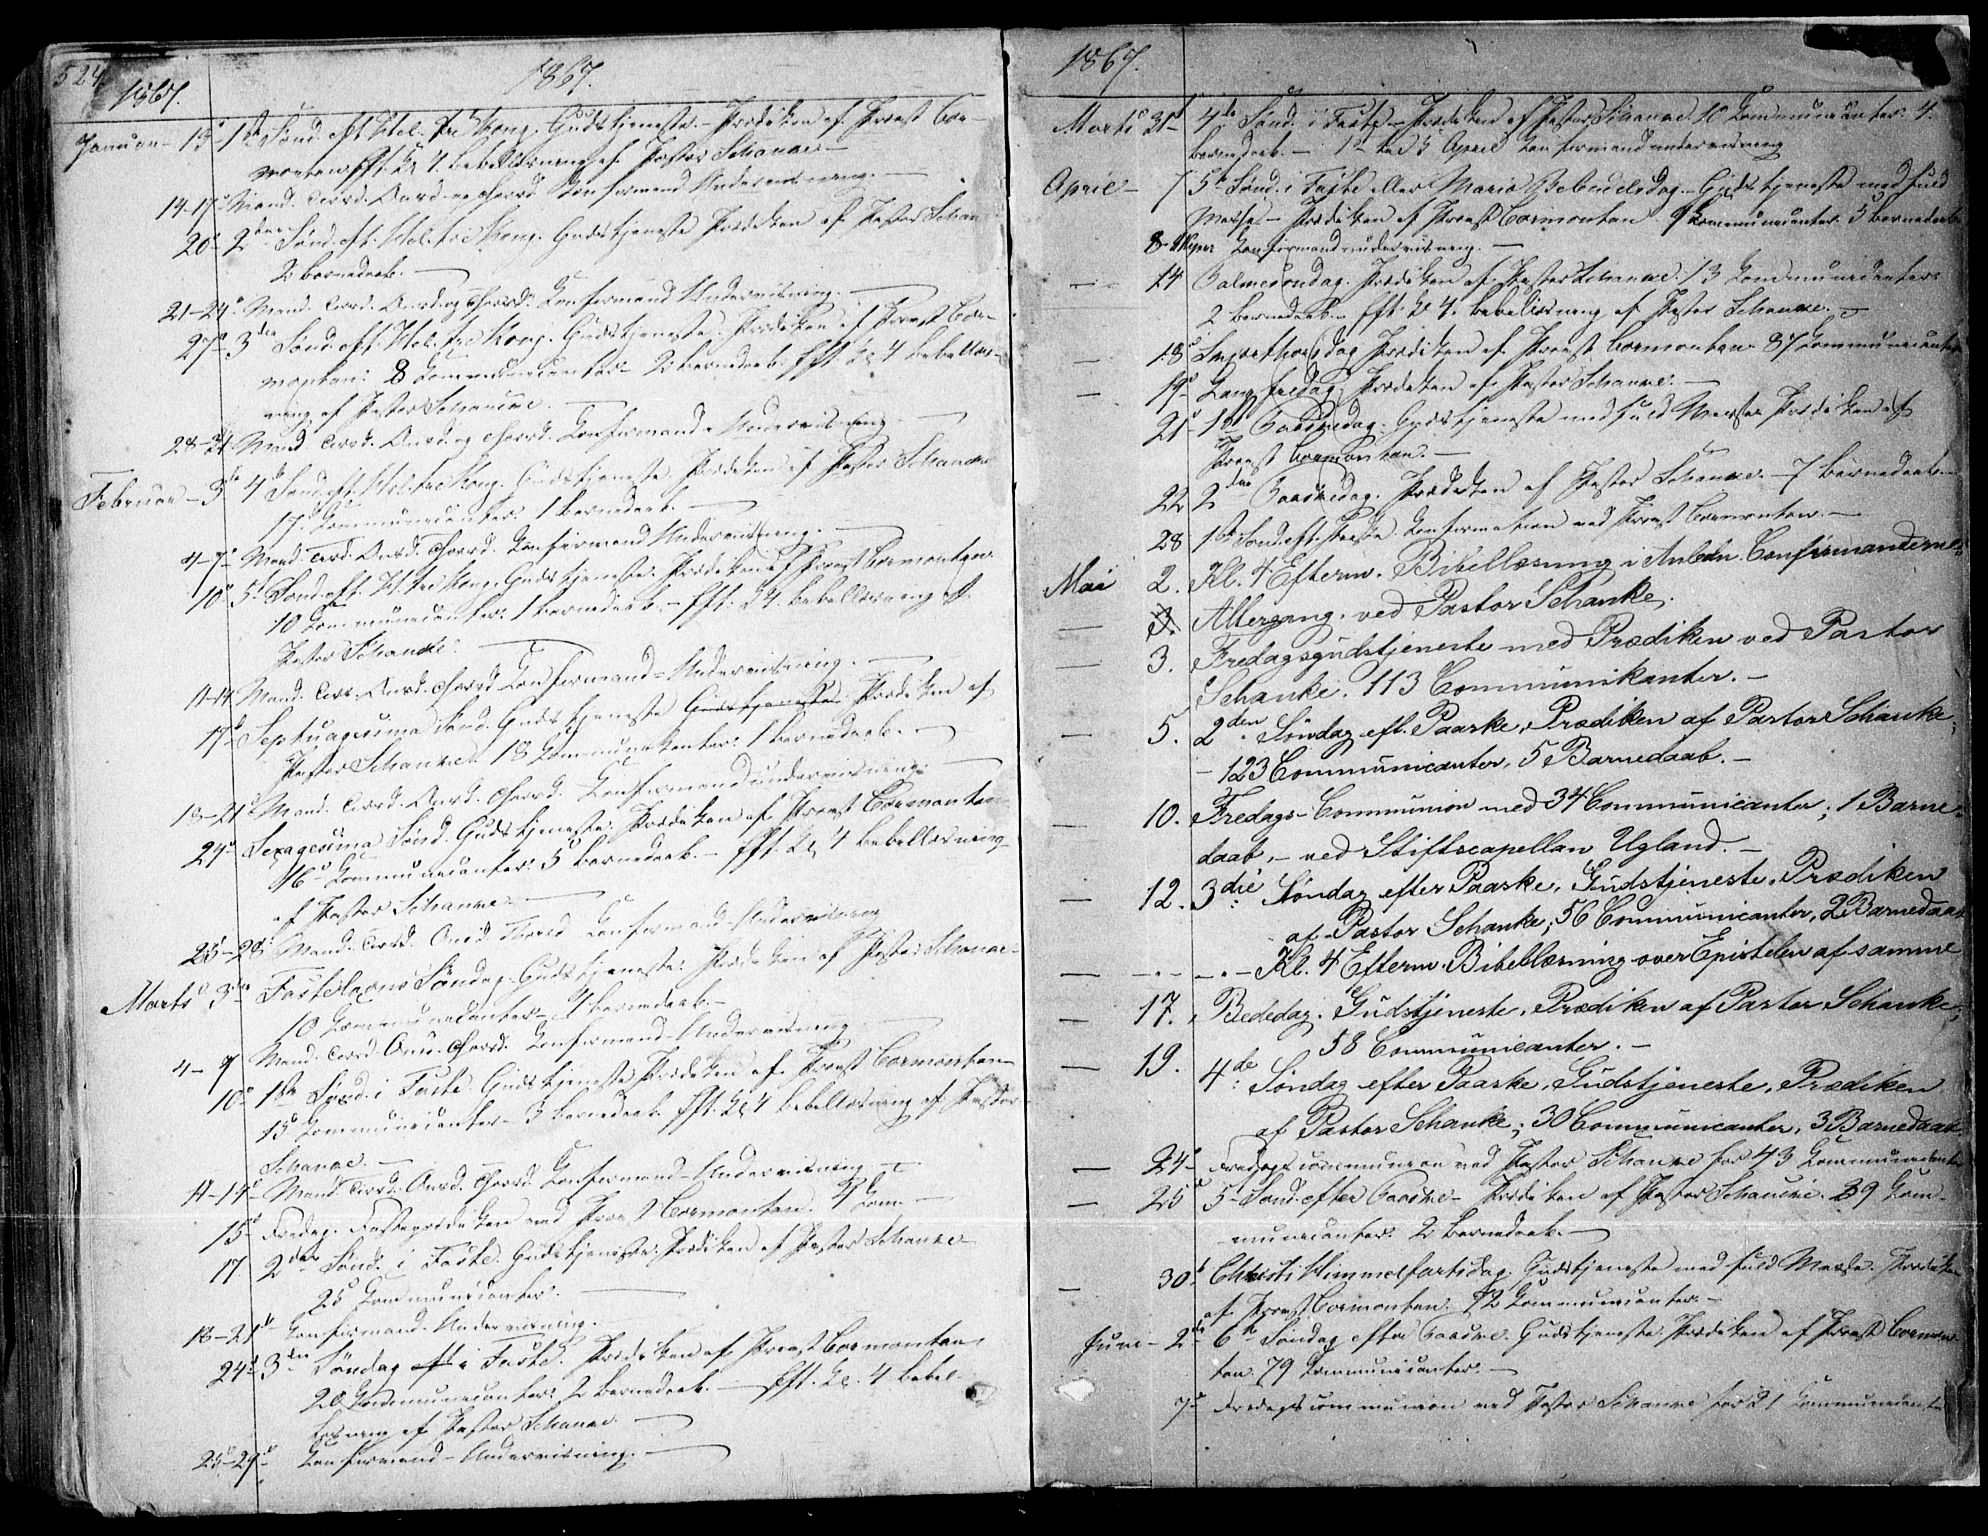 524.
1867.
1867.
Januar – 13de 1ste Sønd. eft. Hel. tre Kong. Gudstjeneste. – Prædiken af Provst Cor-
montan Eft. Kl. 4. Bibellæsning af Pastor Schanke –
14–17de Mand. Tirsd. Onsd. og Thorsd. Konfirmand Undervisning. –
20de 2den Sønd. eft. Hel. tre Kong. Gudstjeneste Prædiken af Pastor Schanke
2 Barnedaab. –
21–24de Mand. Tirsd. Onsd. og Thorsd. Konfirmand Undervisning. –
27de 3die Sønd. eft. Hel. tre Kong. Gudstjeneste. Prædiken af Provst Cor-
montan: 8 Kommunicanter – 2 Barnedaab. Eft. Kl. 4 Bibellæs-
ning af Pastor Schanke. –
28–31. Mand. Tirsd. Onsd. og Thorsd. Konfirmand-Undervisning. –
Februar – 3de 4de Sønd. eft. Hel. tre Kong. Gudstjeneste Prædiken af Pastor Schanke
17 Kommunicanter. 1 Barnedaab. –
4–7de Mand. Tirsd. Onsd. Thorsd. Konfirmand Undervisning. –
10de 5te Sønd. eft. H. tre Kong. Gudstjeneste. Prædiken af Provst Cormontan
10 Kommunicanter. 1 Barnedaab. – Eft. Kl. 4. Bibellæsning af
Pastor Schanke. –
11–14 Mand. Tirs. Onsd. Thorsd Konfirmand-Undervisning. –
17de Septuagesima Sønd. Gudstjeneste Gudstjeneste. Prædiken af
Pastor Schanke. 18 Kommunikanter. 1 Barnedaab. –
18–21de Mand. Tirsd. Onsd. Thorsd. Konfirmandundervisning. –
24de Sexagesima Sønd. Gudstjeneste. Prædiken af Provst Cormontan
16 Kommunicanter. 5 Barnedaab. – Eft. Kl. 4 Bibellæsning
af Pastor Schanke. –
25–28de Mand. Tirsd. Onsd. Thorsd Konfirmand-Undervisning
Marts 3die Fastelavns Søndag. Gudstjeneste. Prædiken af Pastor Schanke –
10 Kommunicanter – 1 Barnedaab. –
4–7 Mand. Tirsd. Ons. Thorsd. Konfirmand-Undervisning –
10de 1ste Sønd. i Faste. Gudstjeneste Prædiken af Provst Cormontan
15 Kommunicanter – 3 Barnedaab. Eft. Kl 4 Bibellæsning af Pastor
Schanke. –
11–14de Mand. Tirsd. Onsd. Thorsd. Konfirmand-Undervisning –
15de Fredag. Fasteprædiken ved Provst Cormontan. Kom –
17 2den Sønd. i Faste. Gudstjeneste. Prædiken af Pastor Schanke –
25 Kommunicanter. –
18–21de Konfirmand-Undervisning.
24de 3die Søndag eft i Faste. Prædiken af Provst Cormontan
20 Kommunicanter. 2 Barnedaab. – Eft. Kl. 4 Bibel-
læsning af Pastor Schanke –
25–29de Konfirmand-Undervisning. –
1867.
Marts 31te 4de Sønd. i Faste – Prædiken af Pastor Schanke. 10 Kommunicanter. 4.
Barnedaab. – 1ste til 5 April Konfirmandundervisning
April – 7 5te Sønd. i Faste eller Mariæ Bebudelsdag. – Gudstjeneste med fuld
Messe. – Prædiken af Provst Cormontan 9 Kommunicanter. 5 Barnedaab
8– Konfirmandundervisning. –
– 14 Palmesøndag. Prædiken af Pastor Schanke. 13 Kommunicanter
2 Barnedaab – Eft. Kl 4. Bibellæsning af Pastor Schanke. –
– 18de Skjærthorsdag Prædiken af Provst Cormontan 87 Kommunicanter
– 19de Langfredag, Prædiken af Pastor Schanke. –
21de 1ste Paaskedag. Gudstjeneste med fuld Messe Prædiken af
Provst Cormontan. –
22 2den Paaskedag. Prædiken af Pastor Schanke. – 7 Barnedaab –
28 1ste Sønd. eft. Paaske. Konfirmation ved Provst Cormontan. –
Mai 2. Kl. 4 Efterm. Bibellæsning i Anledn. Confirmandernes
– 3. Altergang. ved Pastor Schanke.
– 3. Fredagsgudstjeneste med Prædiken ved Pastor
Schanke. 113 Communikanter. –
– 5. 2den Søndag eft. Paaske, Prædiken af Pastor Schanke,
– 123 Communicanter, 5 Barnedaab. –
– 10. Fredags-Communion med 34 Communicanter; 1 Barne-
daab, – ved Stiftscapellan Ugland. –
– 12. 3die Søndag efter Paaske, Gudstjeneste, Prædiken
af Pastor Schanke; 56 Communicanter, 2 Barnedaab
– – „ – „ – Kl. 4 Efterm. Bibellæsning over Epistelen af samme
– 17. Bededag. Gudstjeneste, Prædiken af Pastor Schanke,
58 Communicanter. –
– 19. 4de Søndag efter Paaske, Gudstjeneste, Prædiken
af Pastor Schanke; 30 Communicanter, 3 Barnedaab
– 24de Fredagscommunion ved Pastor Schanke for 43 Kommunicanter
– 25de 5te Sønd. efter Paaske – Prædiken af Pastor Schanke. 39 Kom-
municanter. 2 Barnedaab. –
– 30te Christi Himmelfartsdag. Gudstjeneste med fuld Messe. Prædiken
af Provst Cormontan. 12 Kommunicanter. –
Juni – 2den 6te Søndag efter Paaske. Gudstjeneste. Prædiken af Provst Cormon-
tan 79 Kommunicanter. –
7de Fredagscommunion ved Pastor Schanke for 21 Kommunicanter